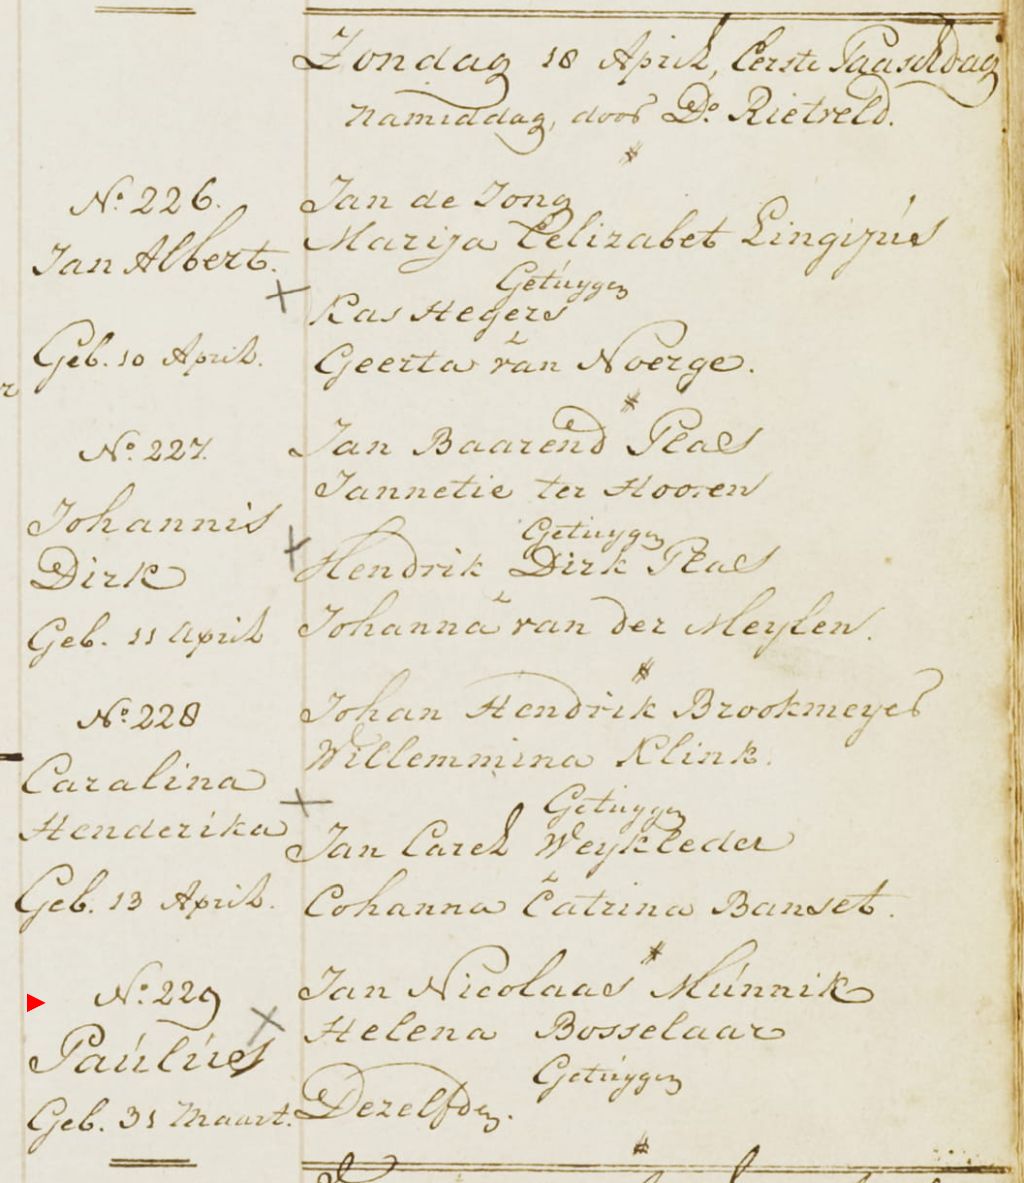 Zondag 18 April, Eerste Paaschdag
Namiddag, door Do. Rietveld.
No. 226. Jan de Jong
Jan Albert. Marija Eelizabet Lingijús
Getúygen
Kas Hegers
Geb. 10 April. Geerta van Noerge.
No. 227. Jan Baarend Plaes
Jannetie ter Hooren
Johannis
Getuygen
Dirk Hendrik Dirk Plaes
Geb. 11 April Johanna van der Meylen.
No. 228 Johan Hendrik Brookmeyer
Willemmina Klink.
Caralina
Getuygen
Henderika Jan Carel Weykleder
Geb. 13 April. Cohanna Catrina Banset.
No. 229 Jan Nicolaas Múnnik
Helena Bosselaar
Paúlúes
Getúygen
Geb. 31 Maart. Dezelfden.